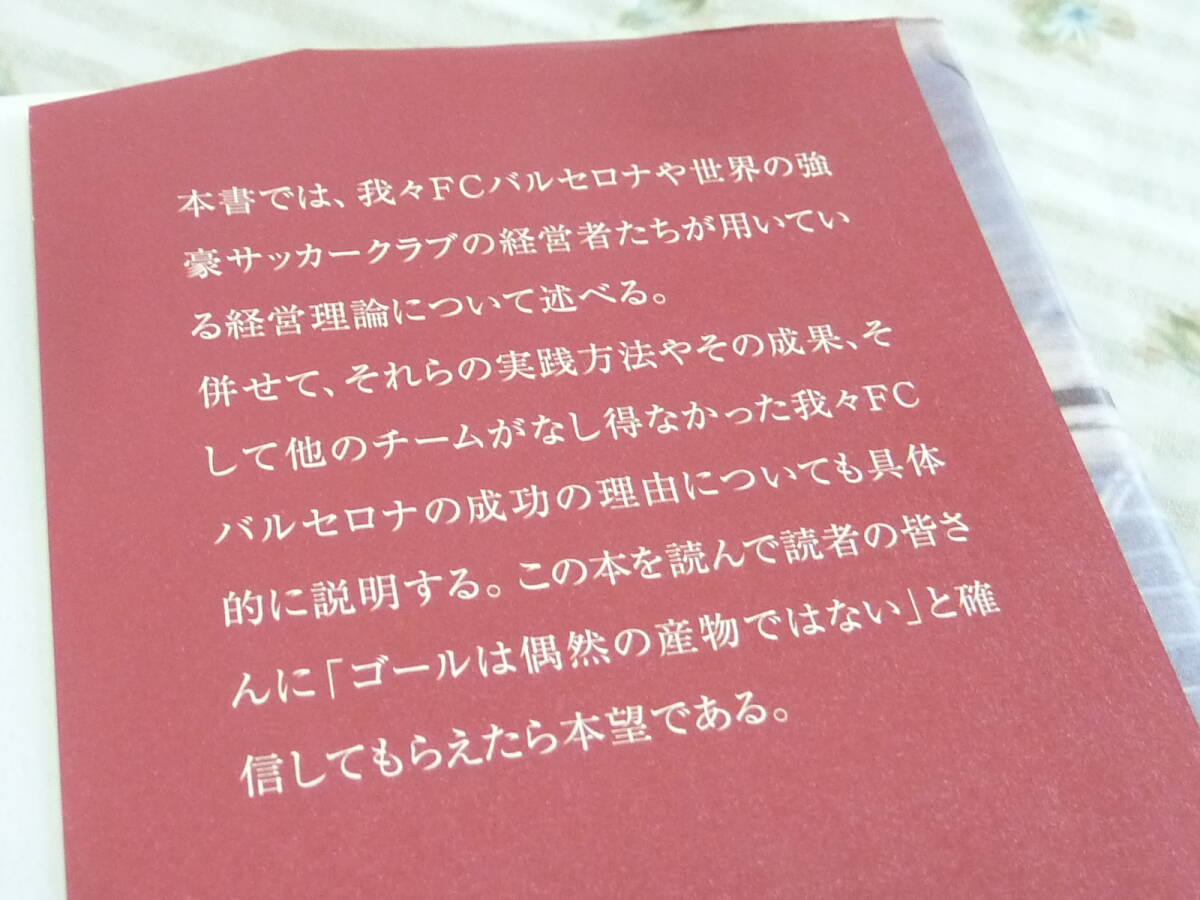 本書では、我々FCバルセロナや世界の強
豪サッカークラブの経営者たちが用いてい
る経営理論について述べる。
併せて、それらの実践方法やその成果、そ
して他のチームがなし得なかった我々FC
バルセロナの成功の理由についても具体
的に説明する。この本を読んで読者の皆さ
んに「ゴールは偶然の産物ではない」と確
信してもらえたら本望である。